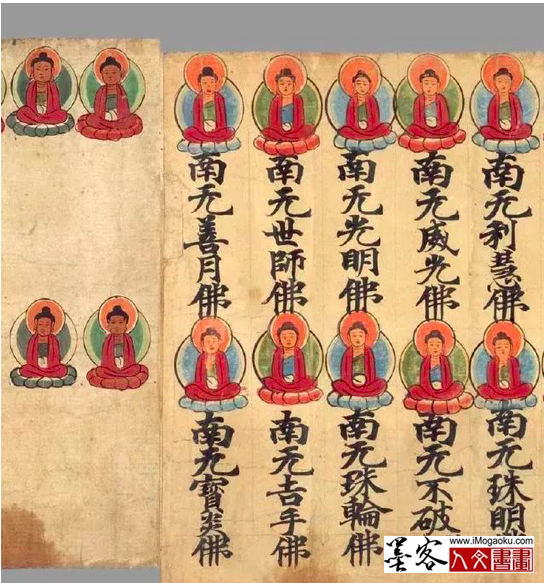 南无利慧佛
南无威光佛
南无光明佛
南无世師佛
南无善月佛
南无珠明
南无不破
南无珠輪佛
南无吉手佛
南无寶炎佛
墨客
www.iMogaoku.com
人文書畫